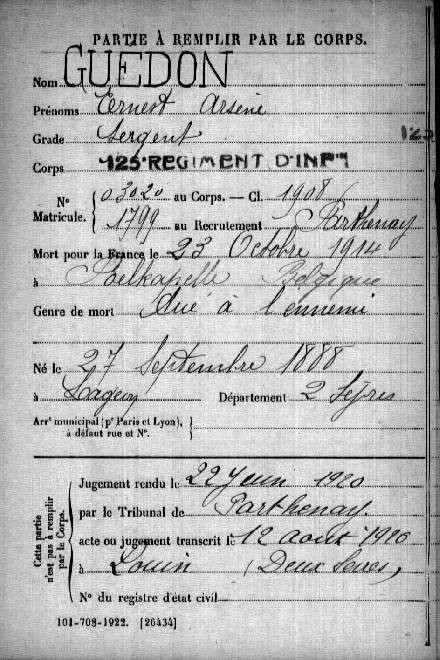 PARTIE À REMPLIR PAR LE CORPS.
Nom GUÉDON
Prénoms Ernest Arsène
Grade Sergent
125
Corps 125e REGIMENT D'INFie
N° Matricule. { 03020 au Corps. — Cl. 1908
1799 au Recrutement Parthenay
Mort pour la France le 23 Octobre 1914
à Poelkapelle Belgique
Genre de mort Tué à l'ennemi
Né le 27 Septembre 1888
à Lageon Département 2 Sèvres
Arrt municipal (pr Paris et Lyon), à défaut rue et N°. }
Cette partie n'est pas à remplir par le Corps.
Jugement rendu le 22 Juin 1920
par le Tribunal de Parthenay.
acte ou jugement transcrit le 12 août 1920
à Louin (Deux Sèvres)
N° du registre d'état civil
101-708-1922. [26434]